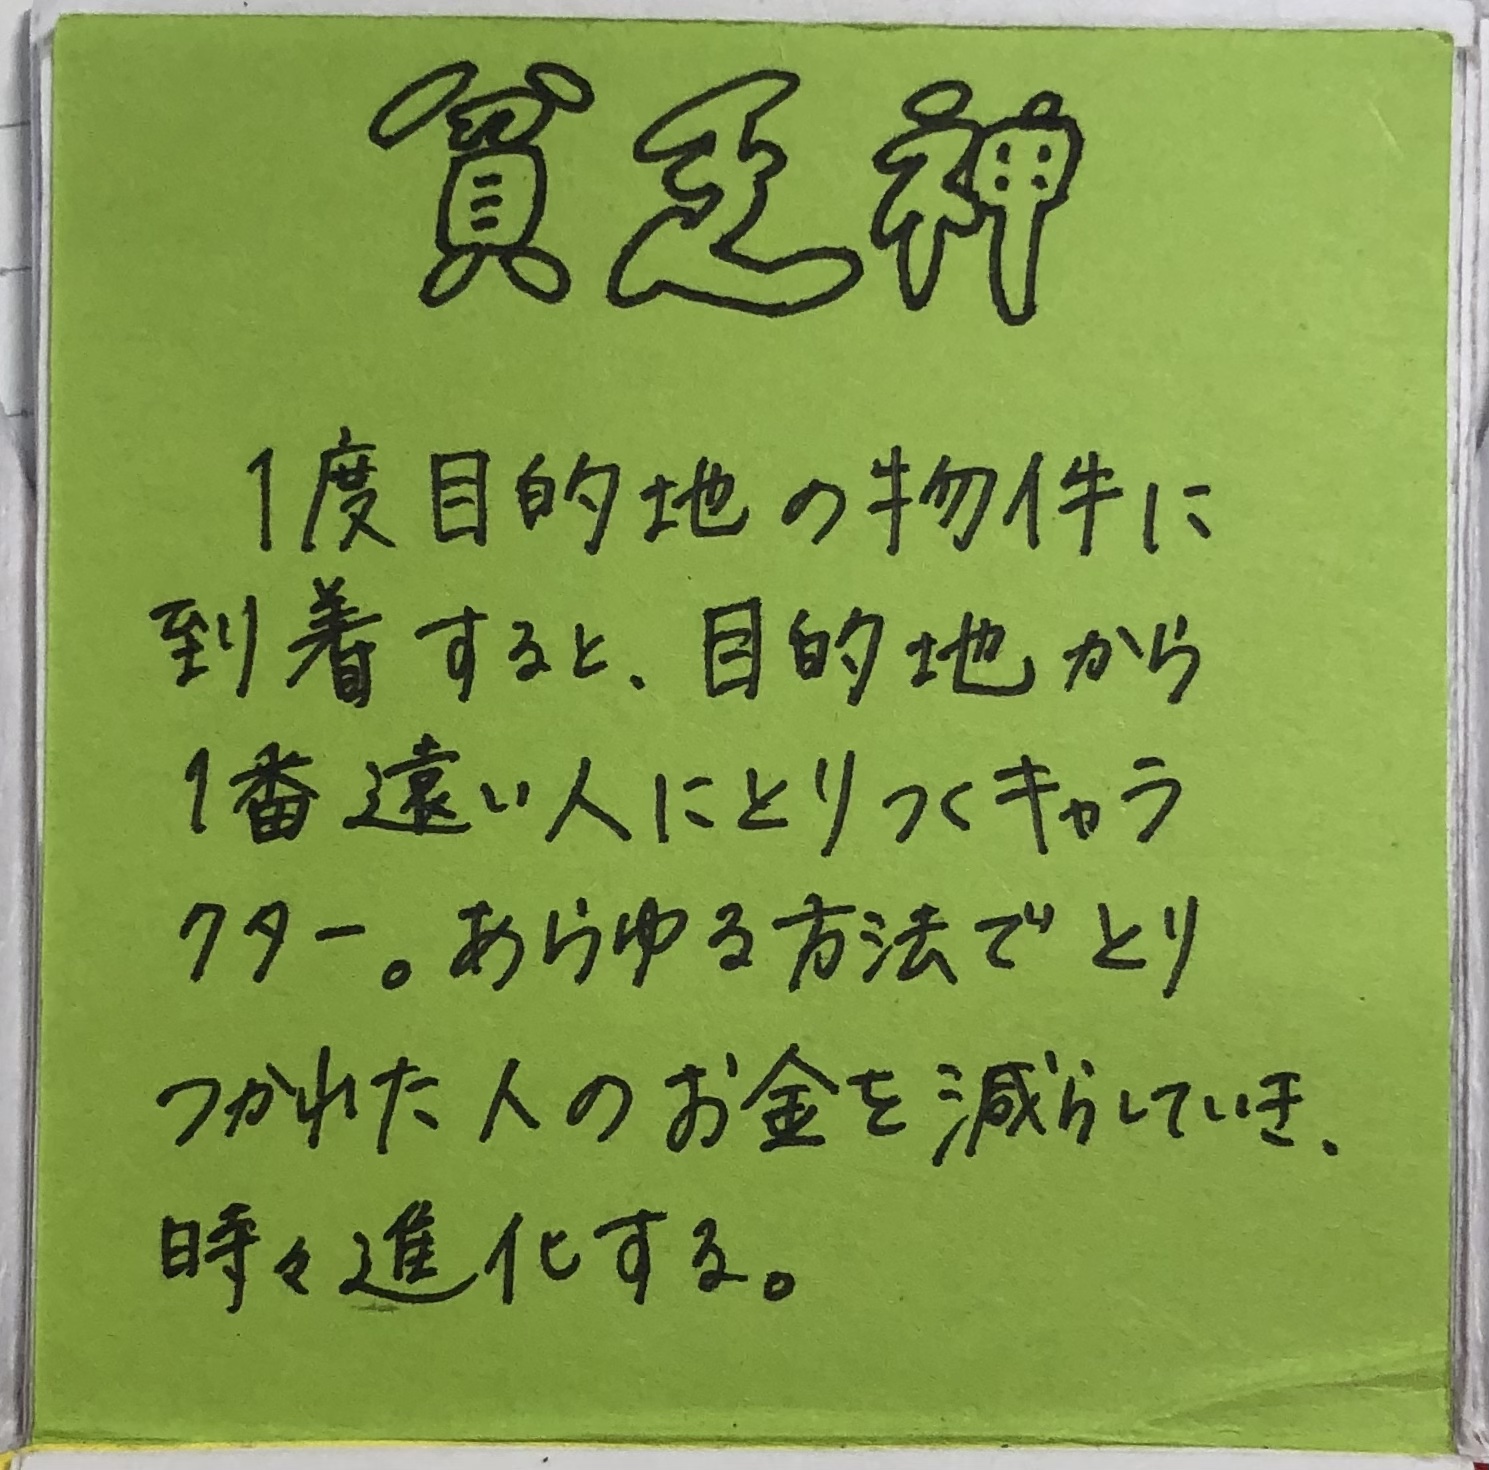 貧乏神
1度目的地の物件に
到着すると、目的地から
1番遠い人にとりつくキャラ
クター。あらゆる方法でとり
つかれた人のお金を減らしていき、
時々進化する。